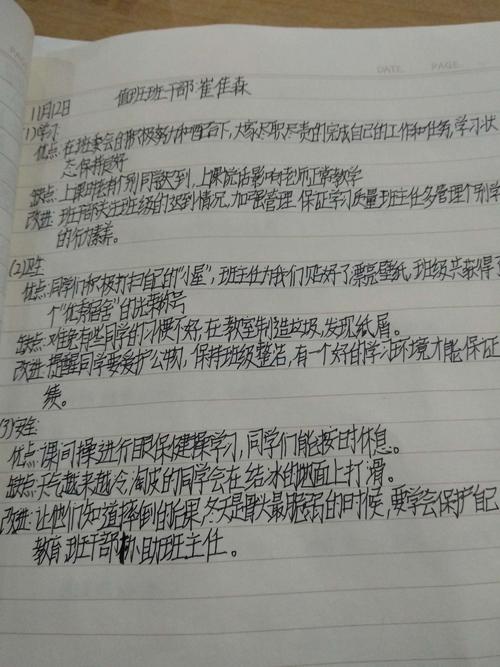 DATE PAGE
11月12日 值班班干部:崔佳森
(1)学习
优点:在班委会的积极努力和配合下,大家尽职尽责的完成自己的工作和任务,学习状
态保持良好
缺点:上课时去有个别同学迟到,上课说话影响老师正常教学
改进:班干部关注班级的迟到情况,加强管理,保证学习质量班主任多管理个别学
的行为素养。
(2)卫生
优点:同学们积极打扫自己的"小屋",班主任为我们贴好了漂亮壁纸,班级共获得了
个"优秀宿舍"的光荣称号
缺点:难免有些同学的习惯不好,在教室制造垃圾,发现纸屑。
改进:提醒同学要爱护公物,保持班级整洁,有一个好的学习环境才能保证
续。
(3)安全
优点:课间操进行眼保健操学习,同学们能按时休息。
缺点:天气越来越冷,淘皮的同学会在结冰的地面上打滑。
改进:让他们知道摔倒的后果,冬天是骨头最脆弱的时候,要学会保护自己
教育,班干部协助班主任。